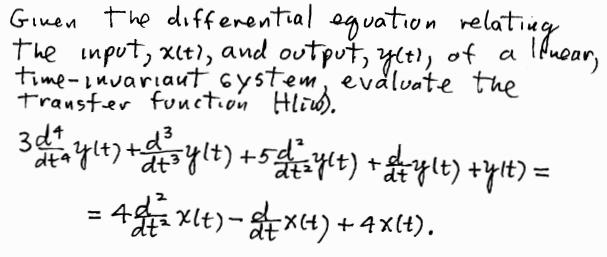 Given the differential equation relating
the input, x(t), and output, y(t), of a linear,
time-invariant system, evaluate the
transfer function H(iω).
3 d⁴/dt⁴ y(t) + d³/dt³ y(t) + 5 d²/dt² y(t) + d/dt y(t) + y(t) =
= 4 d²/dt² x(t) − d/dt x(t) + 4x(t).